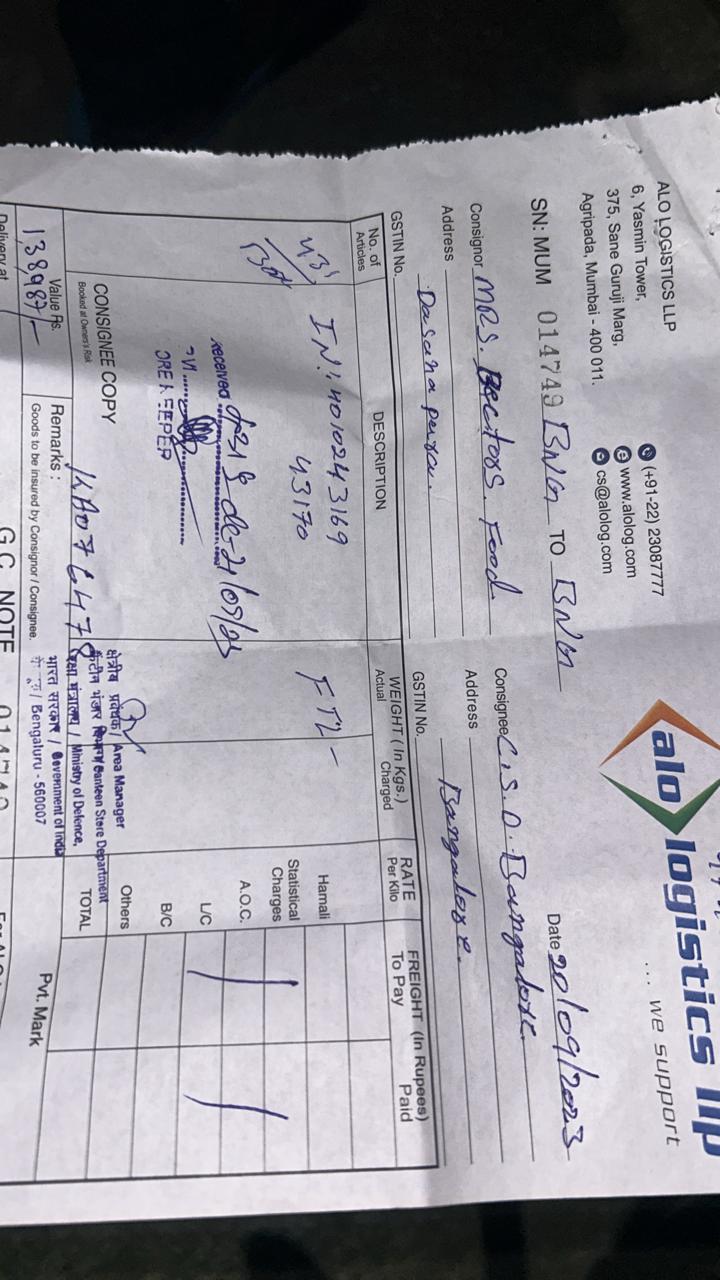 ALO LOGISTICS LLP
6, Yasmin Tower,
375, Sane Guruji Marg,
Agripada, Mumbai - 400 011.
(+91-22) 23087777
www.alolog.com
cs@alolog.com
alo logistics llp
... we support
SN: MUM 014749 BNG TO BNG
Date 20/09/2023
Consignor MRS. Bectors. Food
Consignee C.S.D. Bangalore.
Address Dasanapura.
Address Bangalore.
GSTIN No.
GSTIN No.
No. of Articles
DESCRIPTION
WEIGHT (In Kgs.)
Actual
Charged
RATE Per Kilo
FREIGHT (In Rupees)
To Pay
Paid
IN: 4010243169
43170
FTL -
Hamali
Statistical Charges
A.O.C.
L/C
B/C
Others
TOTAL
received
CONSIGNEE COPY
Booked at Owner's Risk
क्षेत्रीय प्रबंधक / Area Manager
कैंटीन भंडार विभाग / Canteen Store Department
रक्षा मंत्रालय / Ministry of Defence,
भारत सरकार / Government of India
Bengaluru - 560007
Value Rs.
138987/-
Remarks : KA07 6478
Goods to be insured by Consignor / Consignee.
Pvt. Mark
Delivery at
G.C. NOTE